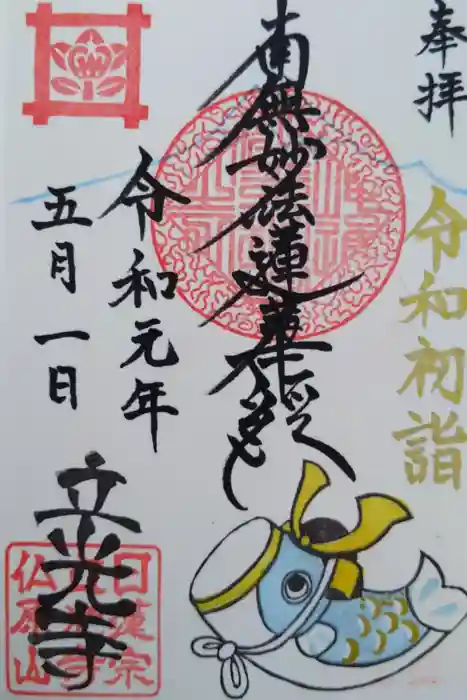 奉拝
令和初詣
南無妙法蓮華経
令和元年
五月一日
立光寺
日蓮宗
仏原山